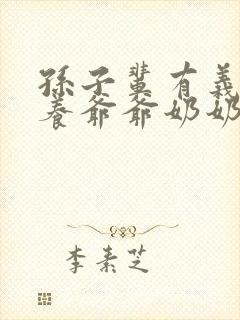 孫子輩有義
養爺爺奶奶
李素芝